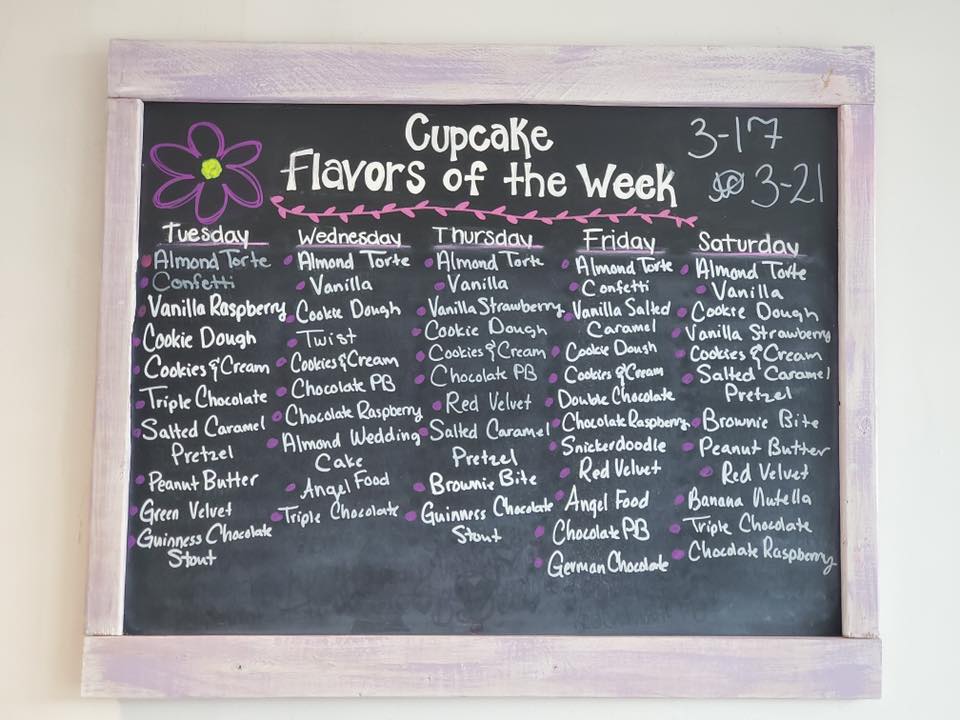 Cupcake
Flavors of the Week
3-17
3-21
Tuesday
Almond Torte
Confetti
Vanilla Raspberry
Cookie Dough
Cookies & Cream
Triple Chocolate
Salted Caramel
Pretzel
Peanut Butter
Green Velvet
Guinness Chocolate
Stout
Wednesday
Almond Torte
Vanilla
Cookie Dough
Twist
Cookies & Cream
Chocolate PB
Chocolate Raspberry
Almond Wedding
Cake
Angel Food
Triple Chocolate
Thursday
Almond Torte
Vanilla
Vanilla Strawberry
Cookie Dough
Cookies & Cream
Chocolate PB
Red Velvet
Salted Caramel
Pretzel
Brownie Bite
Guinness Chocolate
Stout
Friday
Almond Torte
Confetti
Vanilla Salted
Caramel
Cookie Dough
Cookies & Cream
Double Chocolate
Chocolate Raspberry
Snickerdoodle
Red Velvet
Angel Food
Chocolate PB
German Chocolate
Saturday
Almond Torte
Vanilla
Cookie Dough
Vanilla Strawberry
Cookies & Cream
Salted Caramel
Pretzel
Brownie Bite
Peanut Butter
Red Velvet
Banana Nutella
Triple Chocolate
Chocolate Raspberry